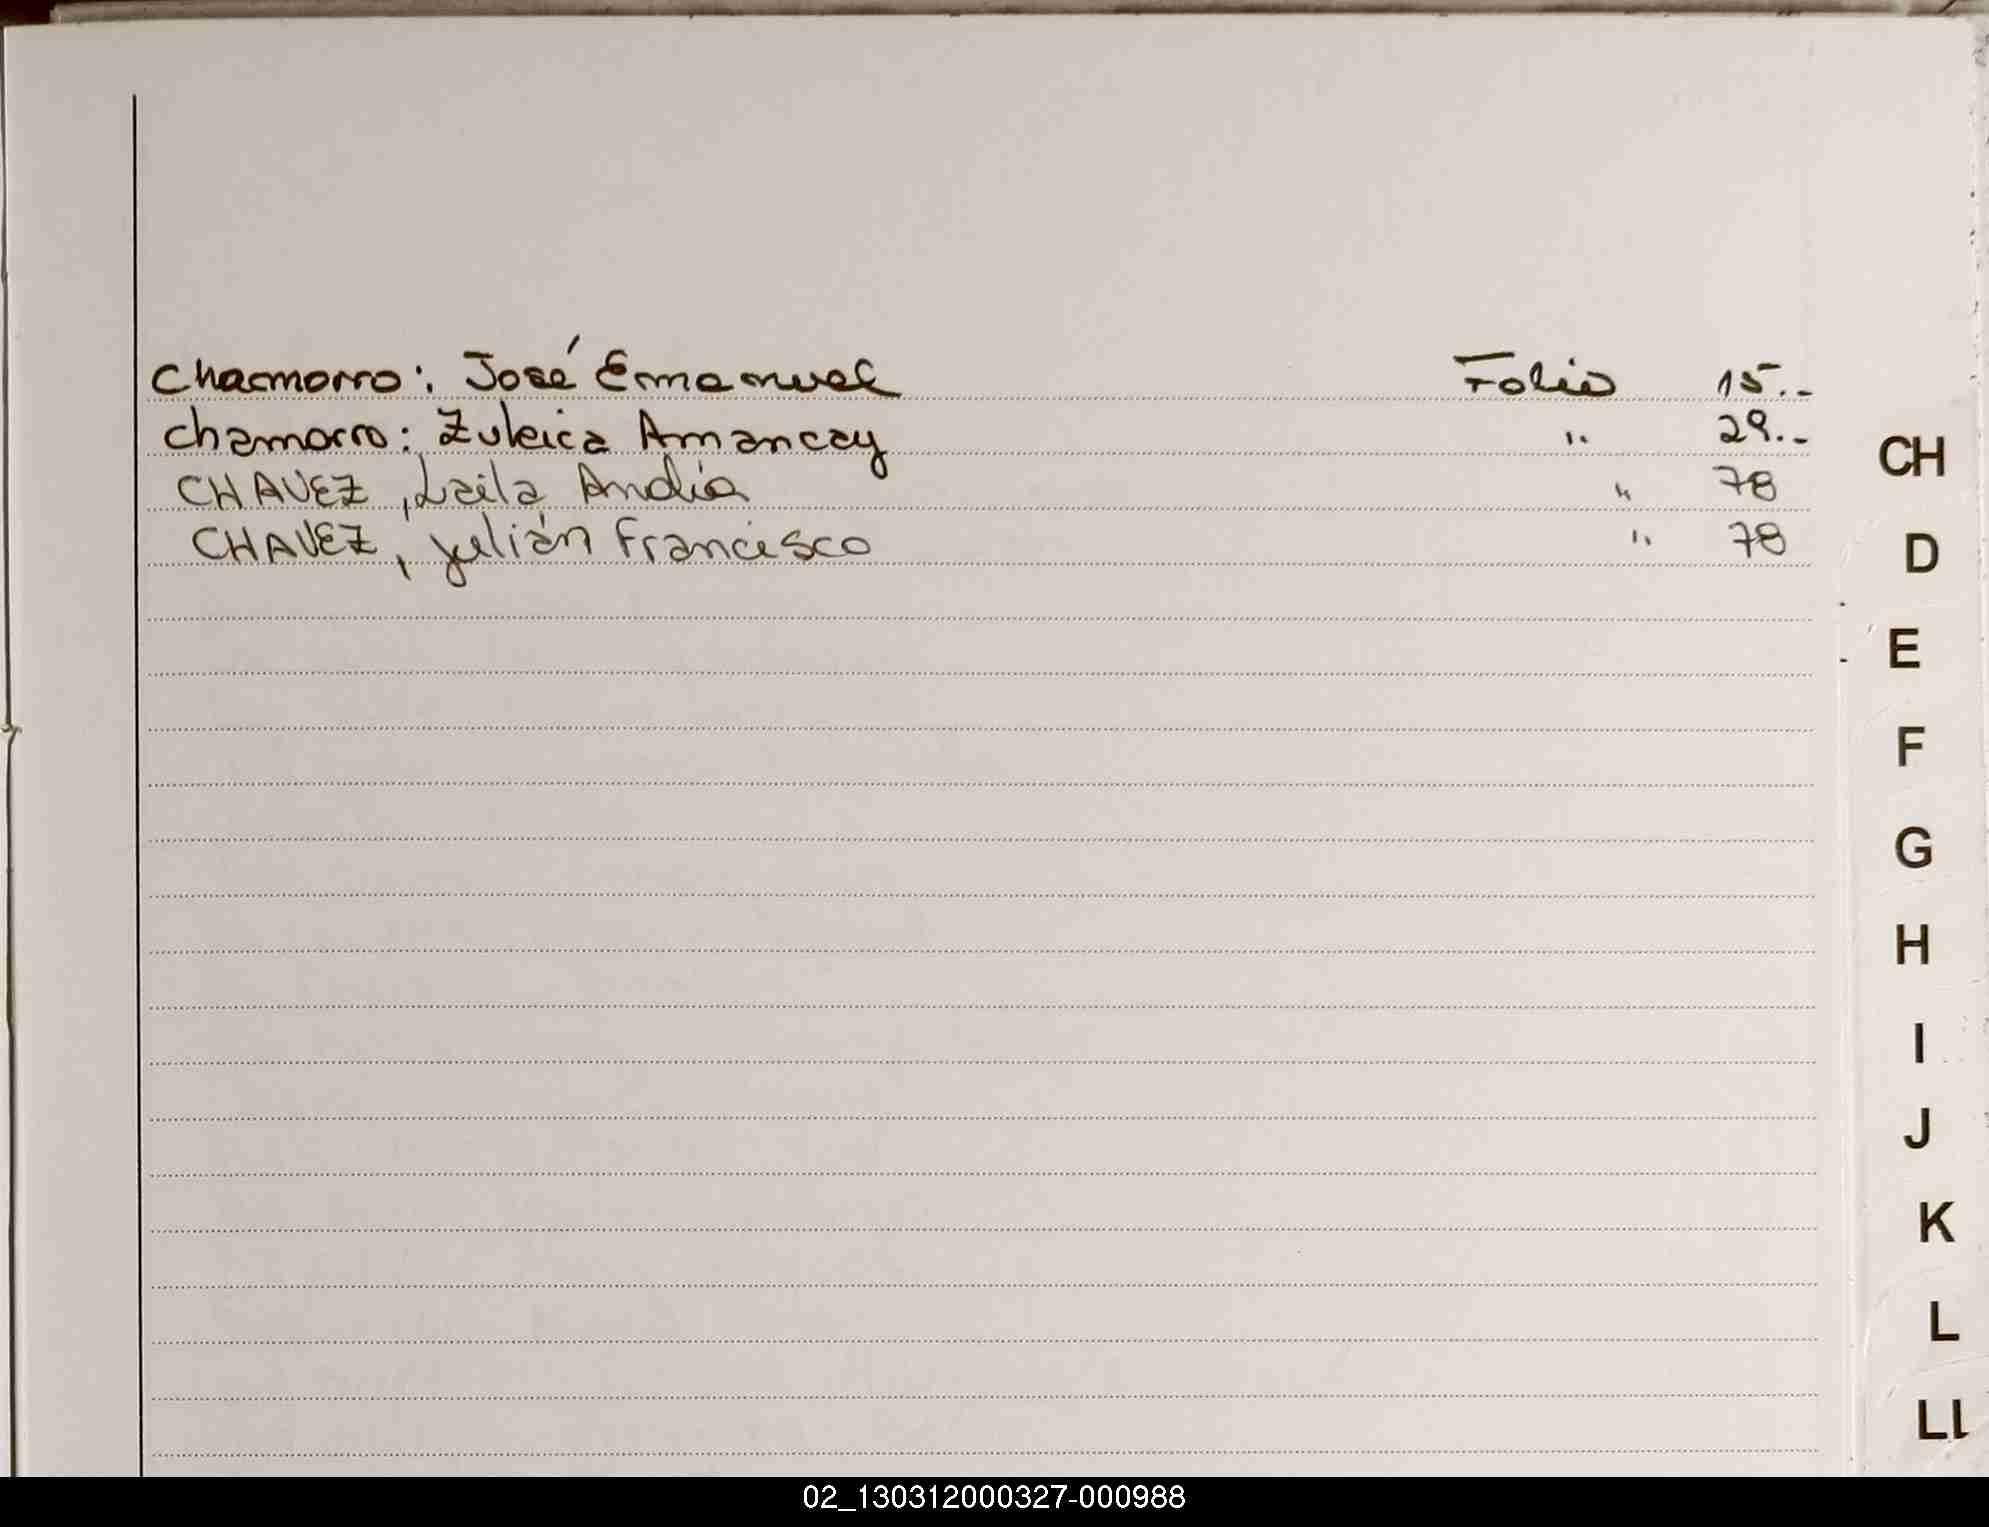 Chamorro: José Emanuel Folio 15.-
Chamorro: Zuleica Amancay " 29.-
CHAVEZ, Laila Andia " 78
CHAVEZ, Julián Francisco " 78
CH
D
E
F
G
H
I
J
K
L
LL
02_130312000327-000988